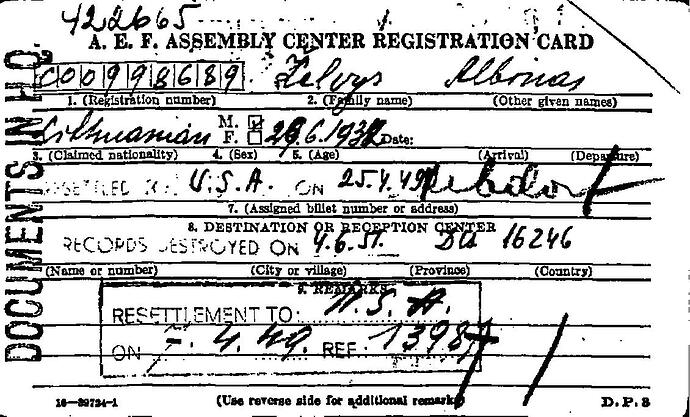 422665
A. E. F. ASSEMBLY CENTER REGISTRATION CARD
C00998689 Zelvys Albinas
1. (Registration number) 2. (Family name) (Other given names)
Lithuanian M. F. 29.6.1932 Date:
3. (Claimed nationality) 4. (Sex) 5. (Age) (Arrival) (Departure)
RESETTLED U.S.A. ON 25.4.49
7. (Assigned billet number or address)
8. DESTINATION OR RECEPTION CENTER
RECORDS DESTROYED ON 4.6.51. DU 16246
(Name or number) (City or village) (Province) (Country)
9. REMARKS
RESETTLEMENT TO: U.S.A.
ON 7. 4.49. REF: 1398
16—39724-1 (Use reverse side for additional remarks) D.P.2
DOCUMENTS IN H.Q.